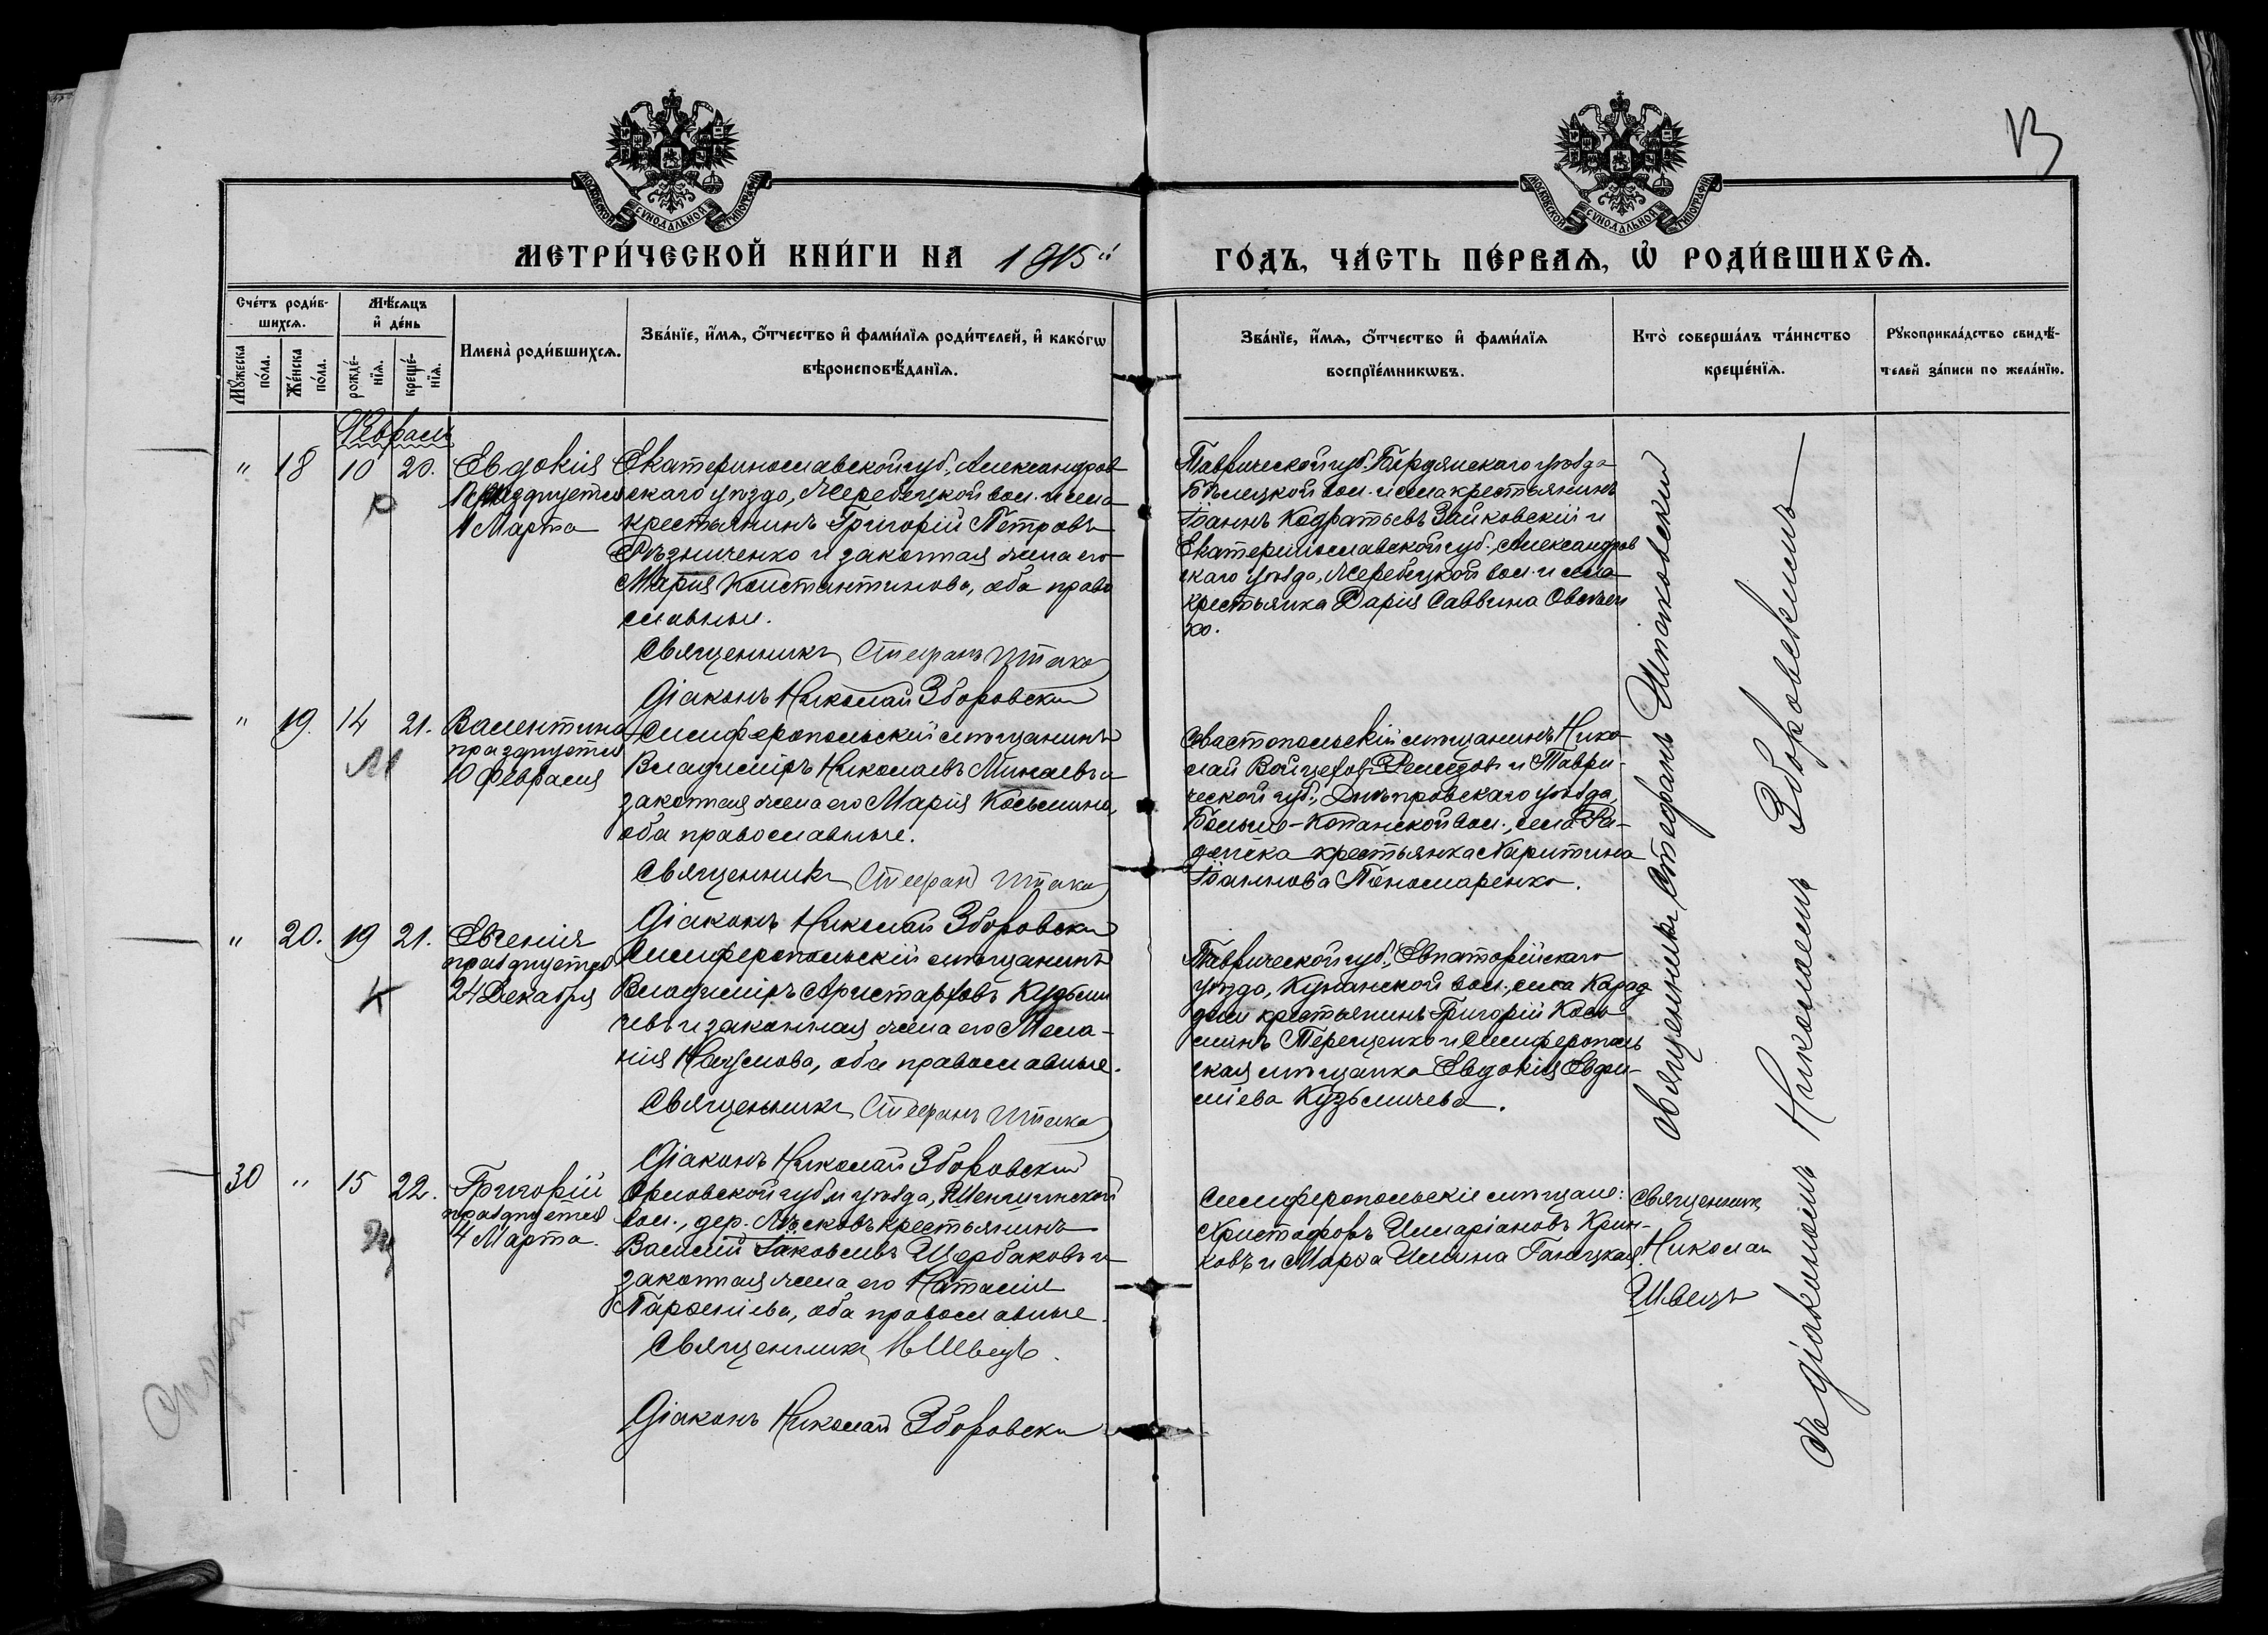 МОСКОВСКОЙ СѴНОДАЛЬНОЙ ТИПОГРАФІИ
МОСКОВСКОЙ СѴНОДАЛЬНОЙ ТИПОГРАФІИ
13
МЕТРИ́ЧЕСКОЙ КНИ́ГИ НА 1915й
ГО́ДЪ, ЧА́СТЬ ПЕ́РВАѦ, Ѡ҆ РОДИ́ВШИХСѦ.
Сче́тъ роди́в-
шихсѧ.
Мꙋ́жеска по́ла.
Же́нска по́ла.
Мѣ́сѧцъ
и҆ де́нь
рожде́-
нїѧ.
креще́-
нїѧ.
Имена̀ роди́вшихсѧ.
Зва́нїе, и҆́мѧ, ѻ҆́тчество и҆ фами́лїѧ роди́телей, и҆ како́гѡ
вѣроисповѣ́данїѧ.
Зва́нїе, и҆́мѧ, ѻ҆́тчество и҆ фами́лїѧ
воспрїе́мникѡвъ.
Кто̀ соверша́лъ та́инство
креще́нїѧ.
Рꙋкоприкла́дство свидѣ́-
телей за́писи по жела́нїю.
Февраль
" 18 10 20. Евдокія
празднуется
1 Марта
Екатеринославской губ., Александров
скаго уѣзда, Жеребецкой вол. и села
крестьянинъ Григорій Петровъ
Рѣзниченко и законная жена его
Марія Константинова, оба право
славные.
Священникъ Стефанъ Штако
Діаконъ Николай Зборовски
Таврической губ. Бердянскаго уѣзда
Бѣлецкой вол. и села крестьянинъ
Іоаннъ Кодратьевъ Зайковскій и
Екатеринославской губ., Александров
скаго уѣзда, Жеребецкой вол. и села
крестьянка Дарія Саввина
" 19. 14 21. Валентина
празднуется
10 Февраля
Симферопольскій мѣщанинъ
Владиміръ Николаевъ Минаевъ и
законная жена его Марія Косьмина,
оба православные.
Священникъ Стефанъ Штако
Діаконъ Николай Зборовски
Севастопольскій мѣщанинъ Нико
лай и Таври-
ческой губ., Днѣпровскаго уѣзда,
Больше-Копанской вол., села Ра-
денска крестьянка Харитина
Іоаннова Пономаренко.
" 20. 19 21. Евгенія
празднуется
24 Декабря
Симферопольскій мѣщанинъ
Владиміръ Аристарховъ Кузьми
чевъ и законная жена его Мела-
нія Наумова, оба православные.
Священникъ Стефанъ Штако
Діаконъ Николай Зборовский
Таврической губ., Евпаторійскаго
уѣзда, Кунанской вол., села
крестьянинъ Григорій Кось
минъ Терещенко и Симферополь
ская мѣщанка Евдокія Евдо-
кіева Кузьмичева.
30 " 15 22. Григорій
празднуется
4 Марта.
Орловской губ. и уѣзда,
вол., дер. крестьянинъ
Василій Іаковлевъ Щербаковъ и
законная жена его Наталія
Парѳеніева, оба православные.
Священникъ Н Швецъ.
Діаконъ Николай Зборовски
Симферопольскіе мѣщане:
Христофоръ Иларіановъ Крин-
ковъ и Марѳа Ильина Ганецкая.
Священникъ Стефанъ Штаковский
съ діакономъ Николаемъ Зборовскимъ
Священникъ
Николай
Швецъ